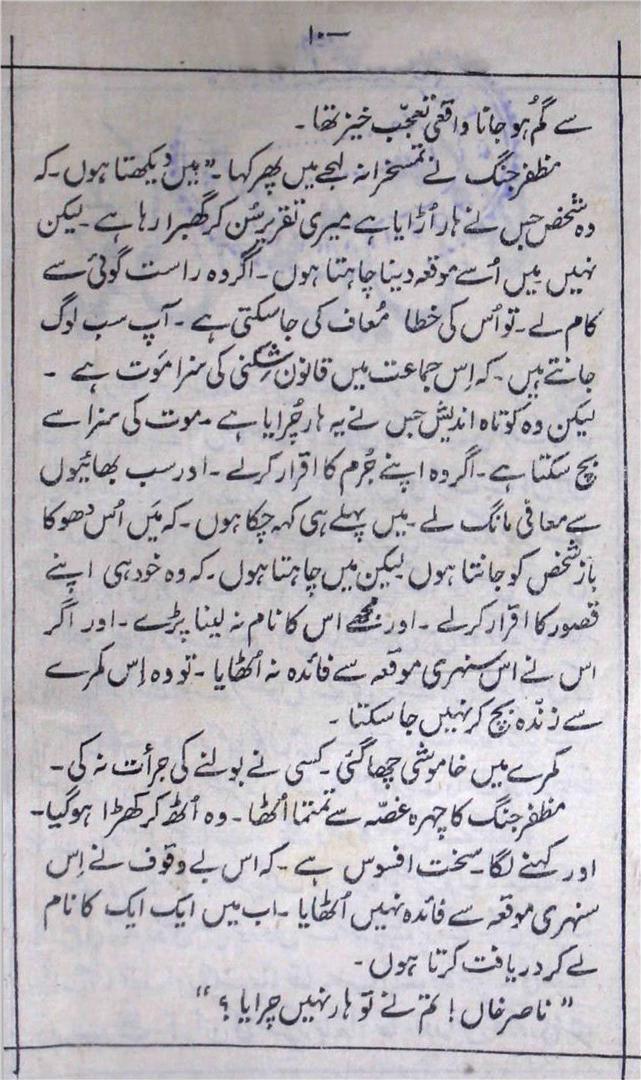 ۱۰
سے گُم ہو جانا واقعی تعجّب خیز تھا۔
مظفر جنگ نے تمسخرانہ لہجے میں پھر کہا۔ "میں دیکھتا ہوں۔ کہ
وہ شخص جس نے ہار اُڑایا ہے میری تقریر سُن کر گھبرا رہا ہے۔ لیکن
نہیں میں اُسے موقعہ دینا چاہتا ہوں۔ اگر وہ راست گوئی سے
کام لے۔ تو اُس کی خطا مُعاف کی جا سکتی ہے۔ آپ سب لوگ
جانتے ہیں۔ کہ اِس جماعت میں قانون شِکنی کی سزا مَوت ہے۔
لیکن وہ کوتاہ اندیش جس نے یہ ہار چُرایا ہے۔ موت کی سزا سے
بچ سکتا ہے۔ اگر وہ اپنے جُرم کا اقرار کرلے۔ اور سب بھائیوں
سے معافی مانگ لے۔ میں پہلے ہی کہہ چکا ہوں۔ کہ مَیں اُس دھوکا
باز شخص کو جانتا ہوں لیکن میں چاہتا ہوں۔ کہ وہ خود ہی اپنے
قصور کا اقرار کرلے۔ اور مجھے اس کا نام نہ لینا پڑے۔ اور اگر
اس نے اس سنہری موقعہ سے فائدہ نہ اُٹھایا۔ تو وہ اِس کمرے
سے زندہ بچ کر نہیں جا سکتا۔
کمرے میں خاموشی چھا گئی۔ کسی نے بولنے کی جرأت نہ کی۔
مظفر جنگ کا چہرہ غصّہ سے تمتما اُٹھا۔ وہ اُٹھ کر کھڑا ہوگیا۔
اور کہنے لگا۔ سخت افسوس ہے۔ کہ اس بے وقوف نے اِس
سنہری موقعہ سے فائدہ نہیں اُٹھایا۔ اب میں ایک ایک کا نام
لے کر دریافت کرتا ہوں۔
"ناصر خاں! تم نے تو ہار نہیں چرایا؟"